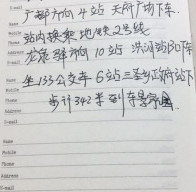 广都方向 4站 天府广场下车.
E-mail
站内换乘地铁2号线
Name
Mobile
龙泉驿方向 10站 洪河站D口下车
Phone
Address
E-mail
Name
坐133公交车 6站三圣乡江家堰站下
Mobile
Phone
步行342米到
Address
E-mail
Name
Mobile
Phone
Address
E-mail